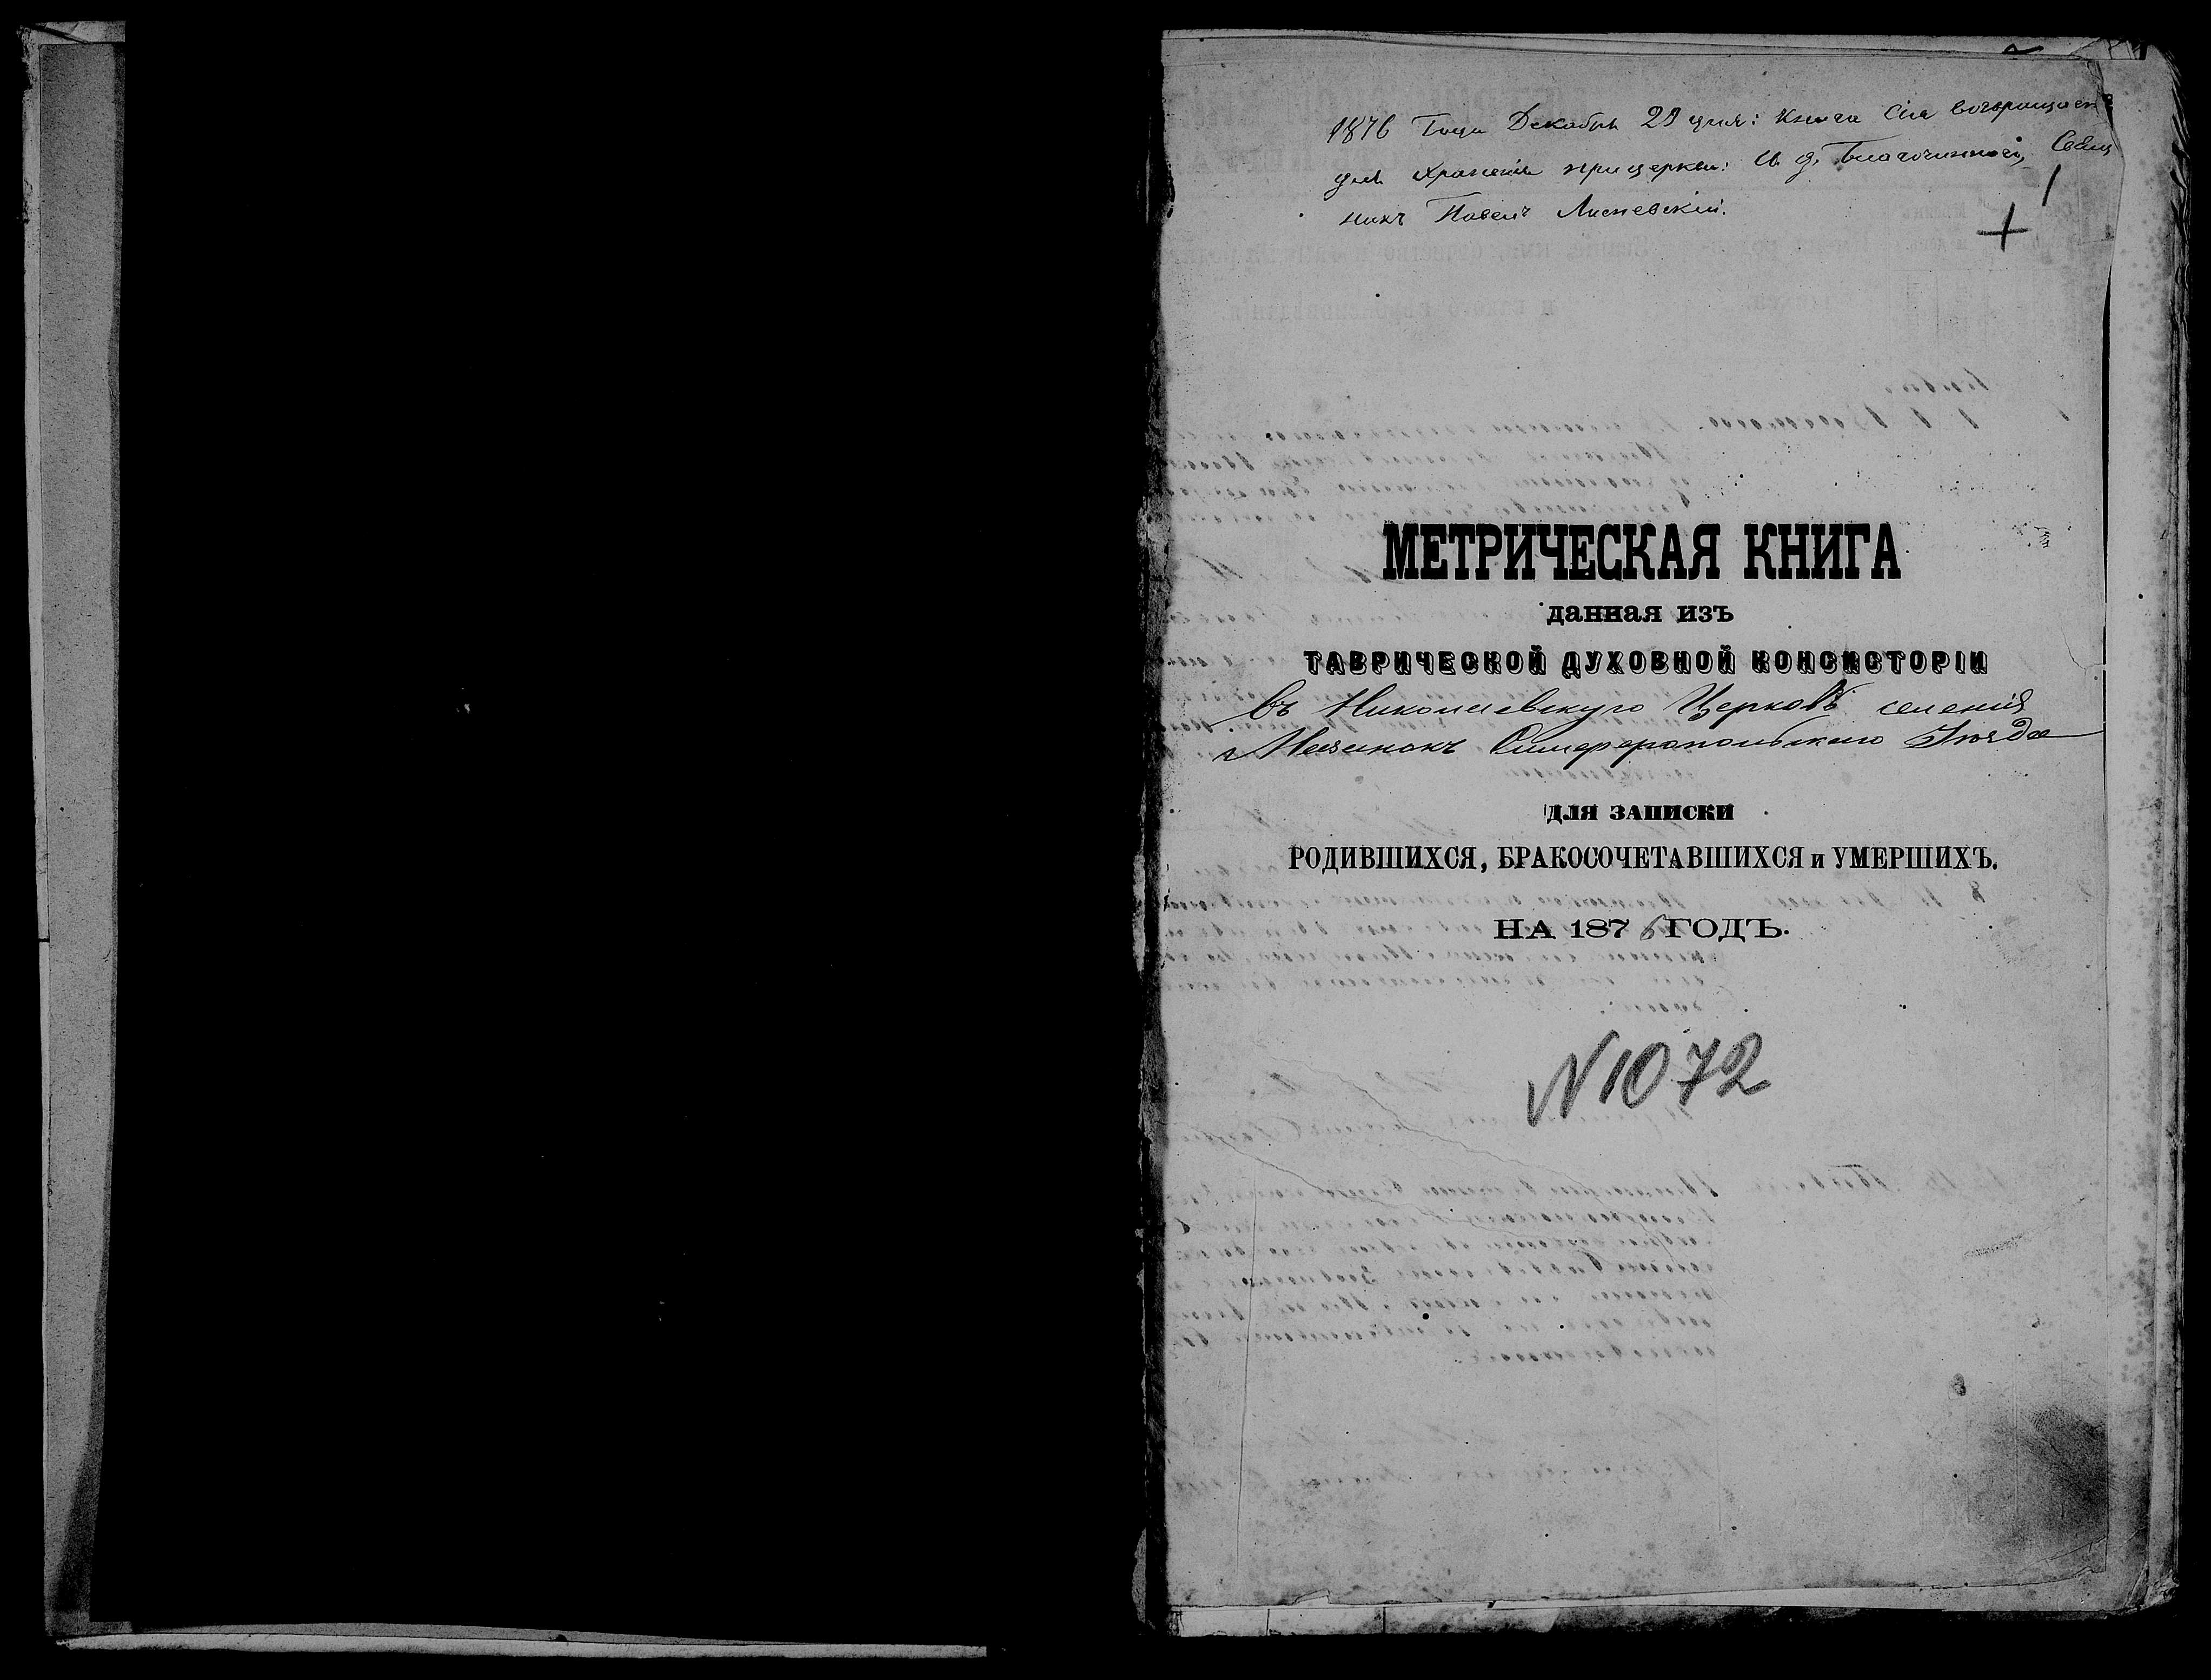 1876 Года Декабря 29 дня: Книга Сія возвращает
для храненія при церкви: И. д. Благочиннаго, Свящ
никъ Павелъ Лисневскій.
МЕТРИЧЕСКАЯ КНИГА
данная изъ
ТАВРИЧЕСКОЙ ДУХОВНОЙ КОНСИСТОРІИ
въ Николаевскую Церковь селенія
Мазанокъ Симферопольскаго Уезда
ДЛЯ ЗАПИСКИ
РОДИВШИХСЯ, БРАКОСОЧЕТАВШИХСЯ и УМЕРШИХЪ.
НА 1876 ГОДЪ.
N 1072